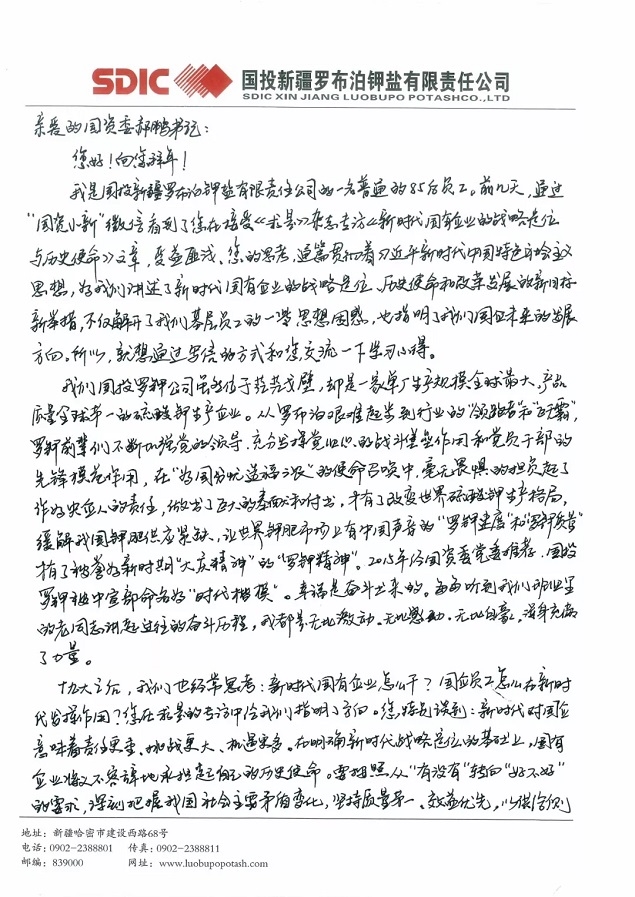 SDIC 国投新疆罗布泊钾盐有限责任公司
SDIC XIN JIANG LUOBUPO POTASHCO.,LTD
亲爱的国资委郝鹏书记：
您好！向您拜年！
我是国投新疆罗布泊钾盐有限责任公司的一名普通的85后员工。前几天，通过
“国资小新”微信看到了您在接受《求是》杂志专访《新时代国有企业的战略定位
与历史使命》文章，受益匪浅。您的思考，通篇贯扣着习近平新时代中国特色社会主义
思想，为我们讲述了新时代国有企业的战略定位、历史使命和改革发展的新目标
新举措，不仅解开了我们基层员工的一些思想困惑，也指明了我们国企未来的发展
方向。所以，就想通过写信的方式和您交流一下学习心得。
我们国投罗钾公司虽然位于茫茫戈壁，却是一家单厂生产规模全球最大、产品
质量全球第一的硫酸钾生产企业。从罗布泊艰难起步到行业的“领跑者”和“巨霸”，
罗钾前辈们不断加强党的领导，充分发挥党组织的战斗堡垒作用和党员干部的
先锋模范作用，在“为国分忧造福三农”的使命召唤中，毫无畏惧的担负起了
作为央企人的责任，做出了巨大的奉献和付出，才有了改变世界硫酸钾生产格局，
缓解我国钾肥供应紧缺，让世界钾肥市场上有中国声音的“罗钾速度”和“罗钾质量”
有了被誉为新时期“大庆精神”的“罗钾精神”。2015年经国资委党委推荐，国投
罗钾被中宣部命名为“时代楷模”。幸福是奋斗出来的。每每听到我们班里
的老同志讲起过往的奋斗历程，我都是无比激动、无比感动、无比自豪，浑身充满
了力量。
十九大之后，我们也经常思考：新时代国有企业怎么干？国企员工怎么在新时
代发挥作用？您在求是的专访中给我们指明了方向。您特别谈到：新时代对国企
意味着责任更重、挑战更大、机遇更多。在明确新时代战略定位的基础上，国有
企业将义不容辞地承担起自己的历史使命。要按照从“有没有”转向“好不好”
的要求，深刻把握我国社会主要矛盾变化，坚持质量第一、效益优先，以供给侧
地址：新疆哈密市建设西路68号
电话：0902-2388801 传真：0902-2388811
邮编：839000 网址：www.luobupopotash.com